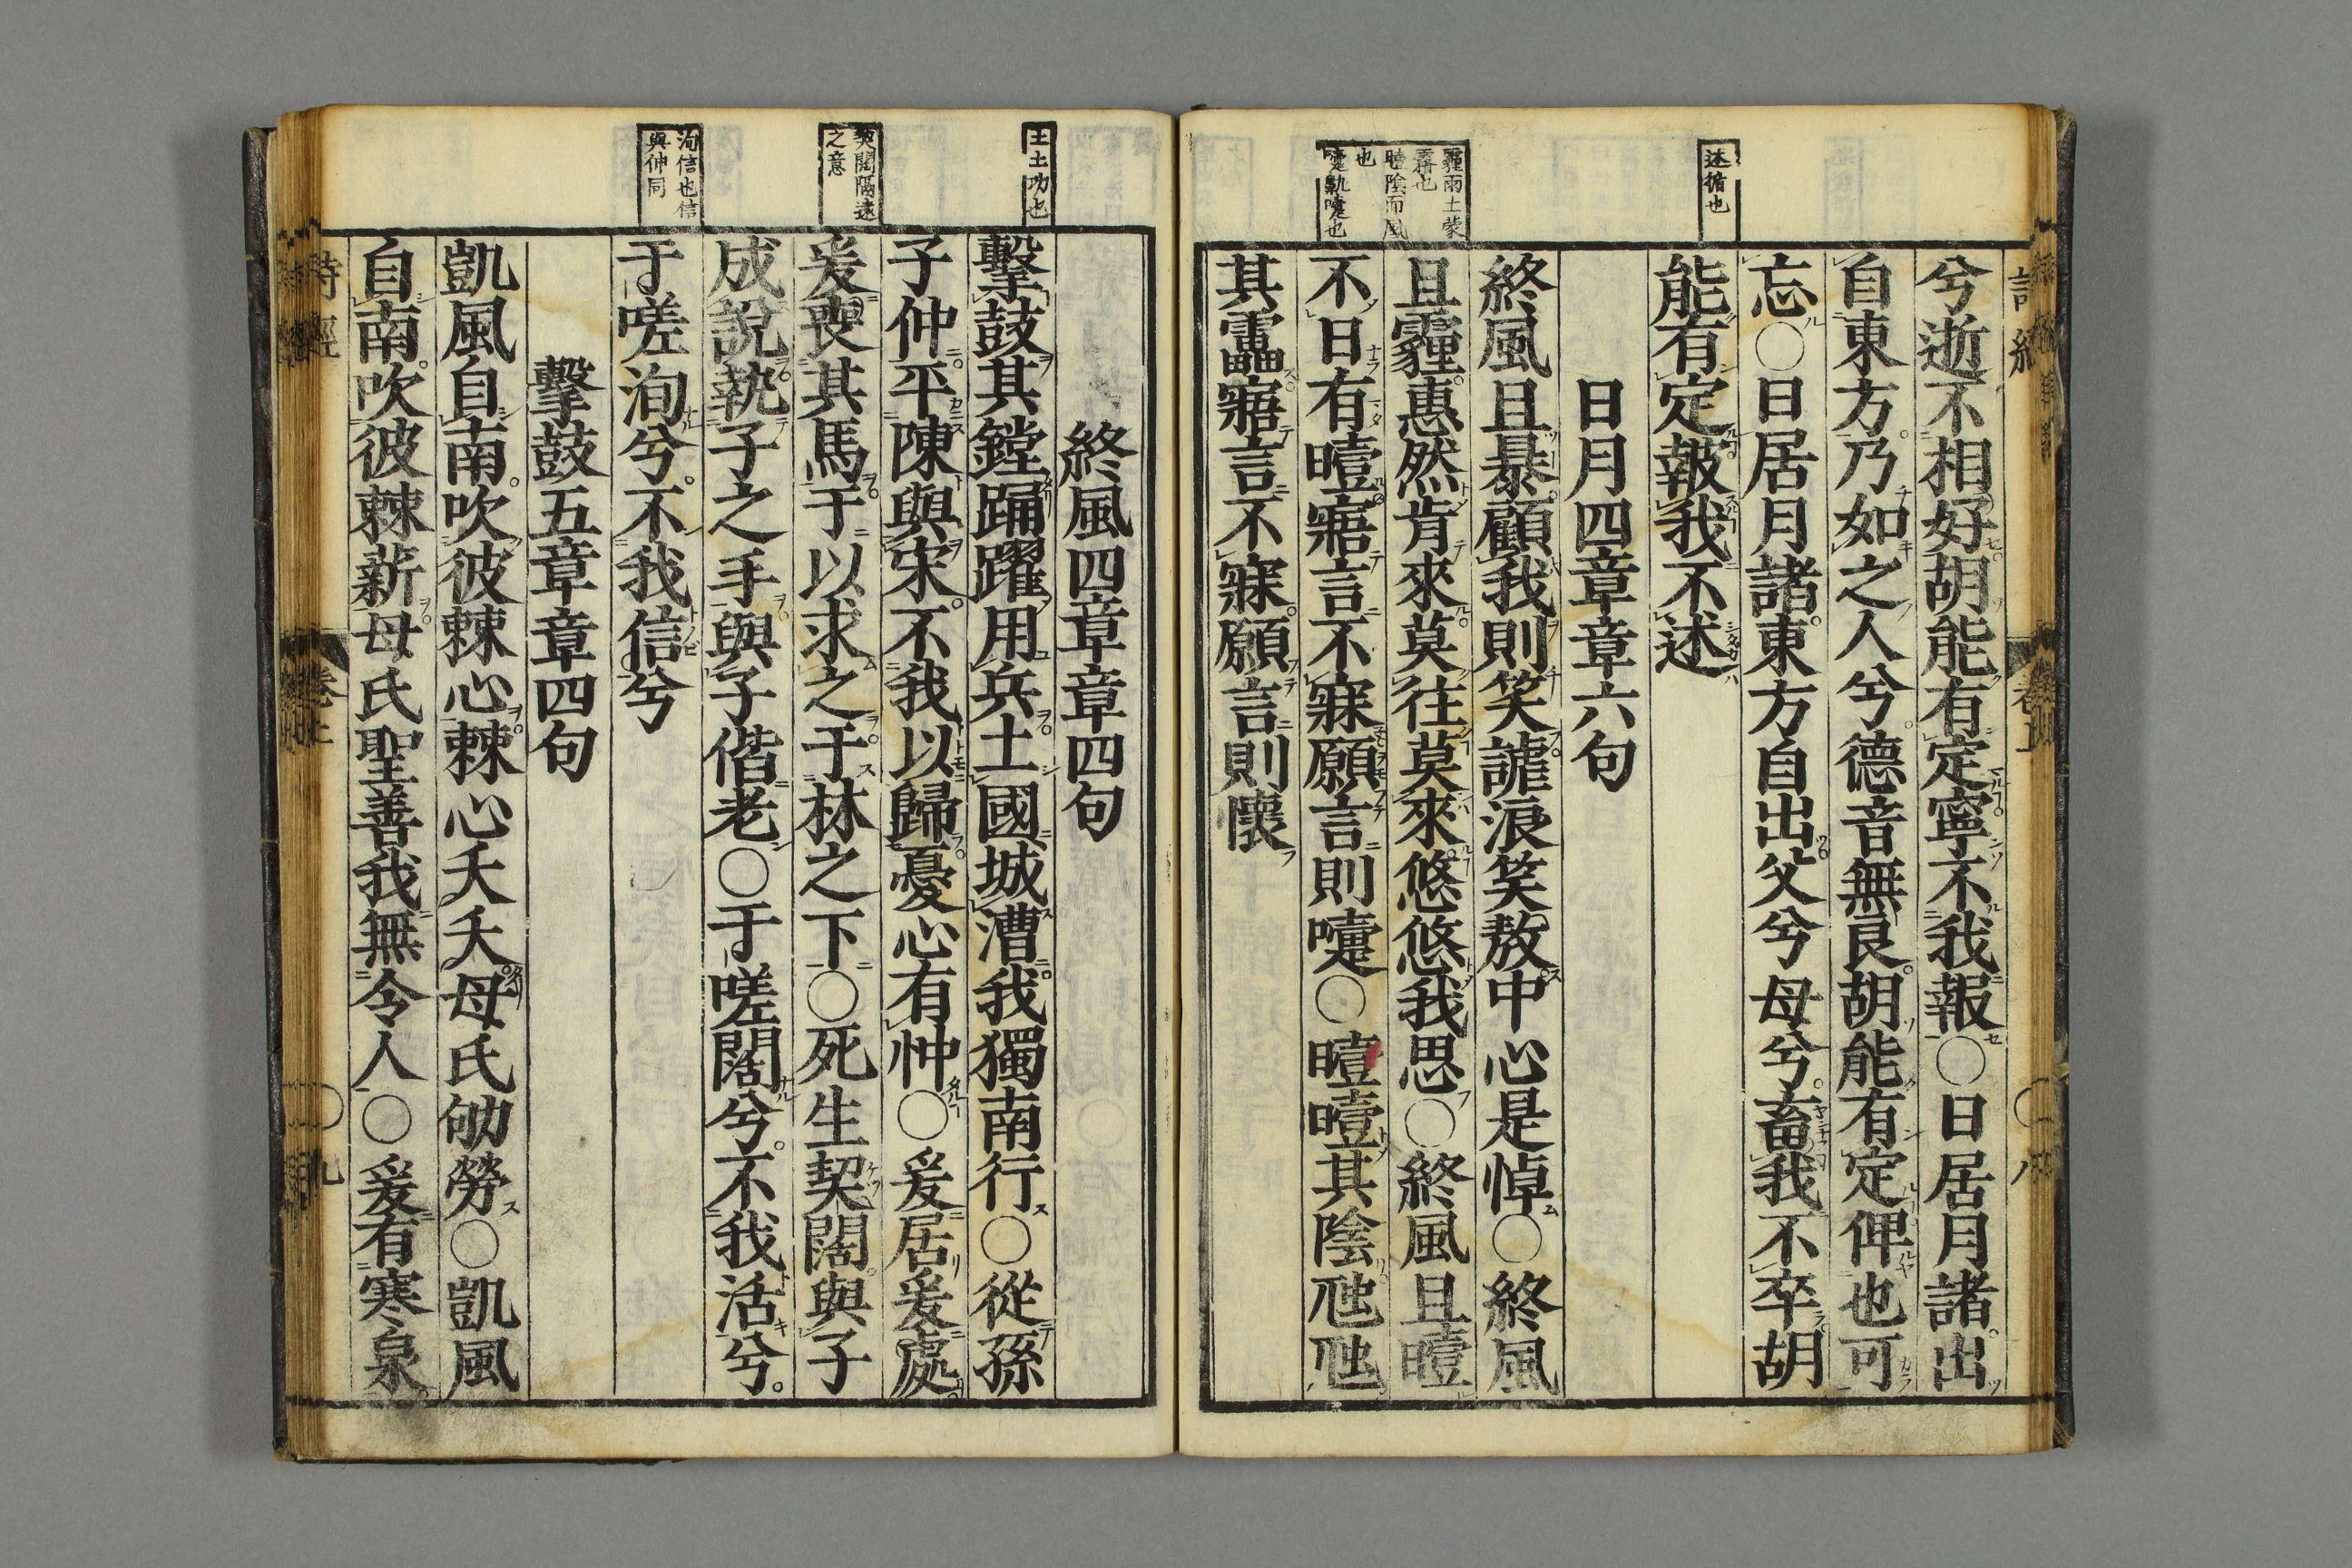 述循也
霾雨土蒙
霧也
曀陰而風
也
嚏鼽嚏也
兮逝不相好胡能有定寧不我報○日居月諸出
自東方乃如之人兮德音無良胡能有定俾也可
忘○日居月諸東方自出父兮母兮畜我不卒胡
能有定報我不述
日月四章章六句
終風且暴顧我則笑謔浪笑敖中心是悼○終風
且霾惠然肯來莫往莫來悠悠我思○終風且曀
不日有曀寤言不寐願言則嚏○曀曀其陰虺虺
其靁寤言不寐願言則懷
土土功也
契闊隔遠
之意
洵信也信
與伸同
終風四章章四句
擊鼓其鏜踊躍用兵土國城漕我獨南行○從孫
子仲平陳與宋不我以歸憂心有忡○爰居爰處
爰喪其馬于以求之于林之下○死生契闊與子
成說執子之手與子偕老○于嗟闊兮不我活兮
于嗟洵兮不我信兮
擊鼓五章章四句
凱風自南吹彼棘心棘心夭夭母氏劬勞○凱風
自南吹彼棘薪母氏聖善我無令人○爰有寒泉
詩經